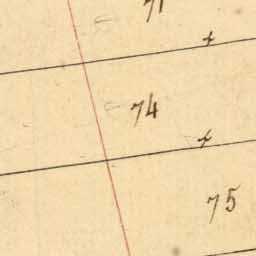 74
75